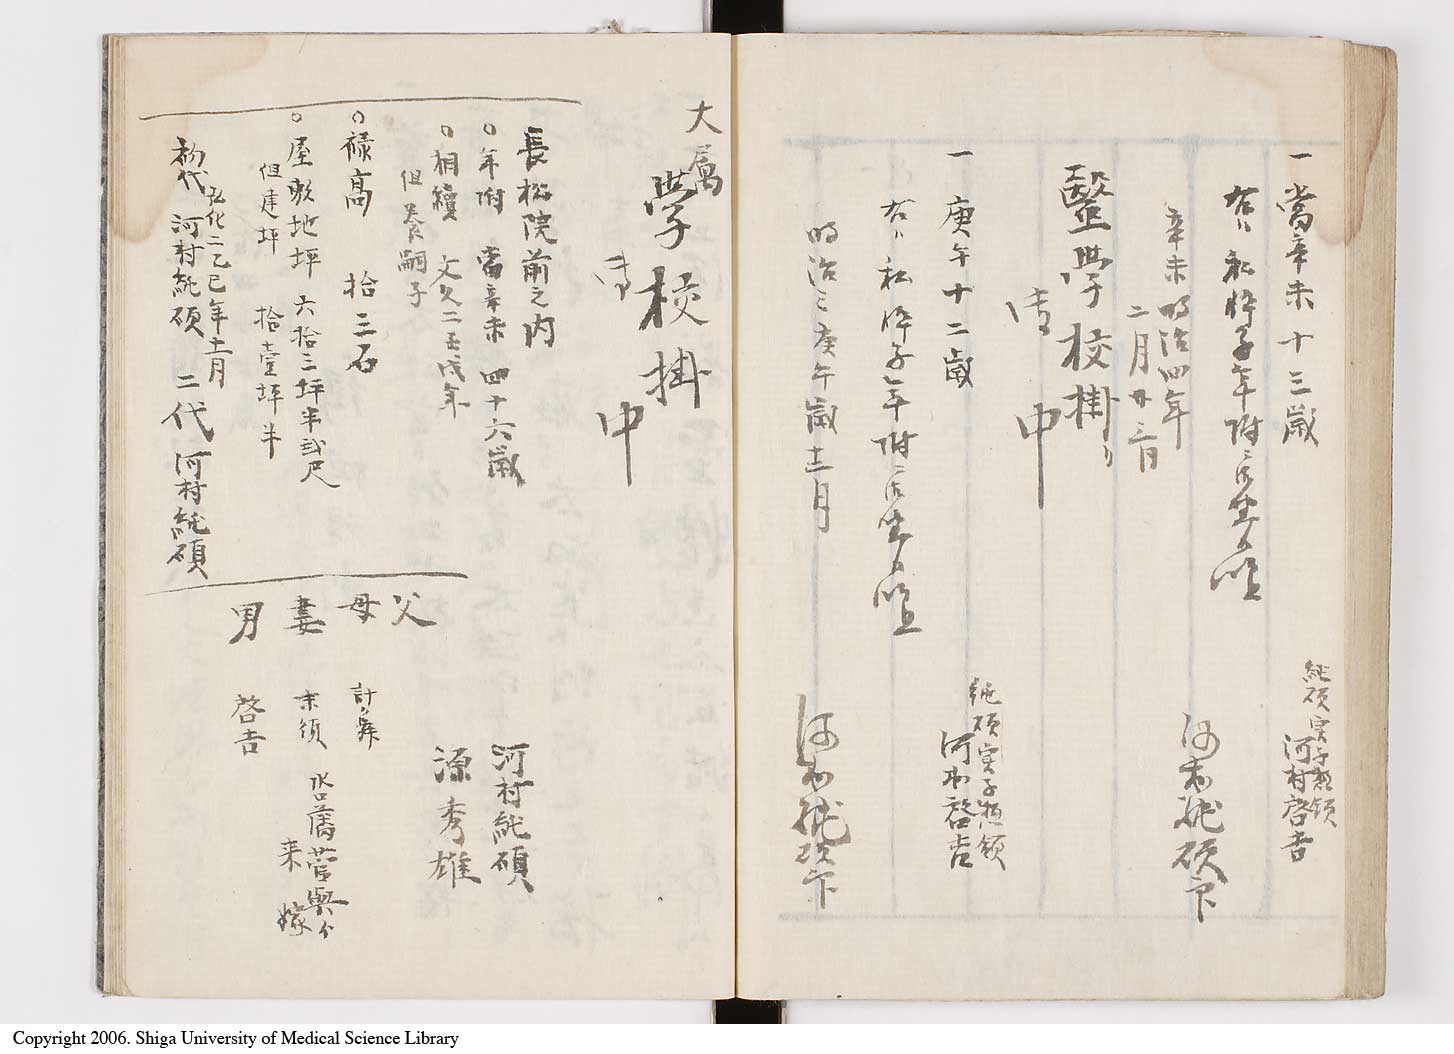 一當辛未十三歳
純碩実子惣領
河村啓吉
右ハ私悴子年附ニ御座候
以上
辛未明治四年
二月廿三日
河村純碩印
醫学校掛り
御中
一庚午十二歳
純碩実子惣領
河村啓吉
右ハ私悴子年附ニ御座候
以上
明治三庚午歳十二月
河村純碩印
大属
学校掛
御中
長松院前之内
○年附 當辛未四十六歳
○相續 文久二壬戌年
但養嗣子
○禄高 拾三石
○屋敷地坪 六拾三坪半弐尺
但建坪 拾壹坪半
初代 弘化二乙巳年十一月
河村純碩 二代 河村純碩
河村純碩
源秀雄
父
母
妻 末須
来嫁
男 啓吉
Copyright 2006. Shiga University of Medical Science Library